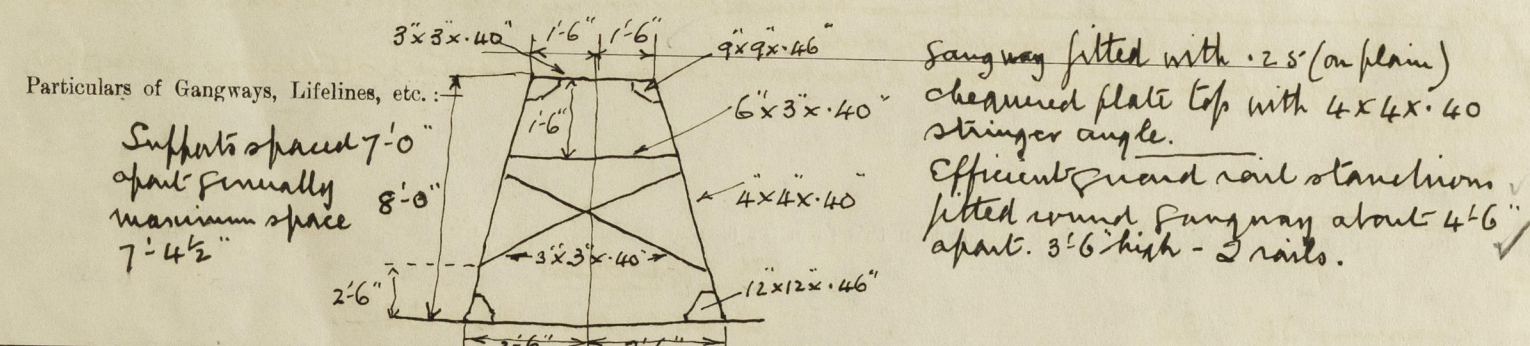 Particulars of Gangways, Lifelines, etc. :—
Supports spaced 7'-0"
apart generally
maximum space
7'-4½"
3"x3"x.40"
1'-6" 1'-6"
9"x9"x.46"
1'-6"
6"x3"x.40"
8'-0"
4"x4"x.40"
3"x3"x.40"
2'-6"
12"x12"x.46"
Gangway fitted with .25 (on plain)
chequered plate top with 4x4x.40
stringer angle.
Efficient guard rail stanchions
fitted round gangway about 4'-6"
apart. 3'-6" high - 2 rails.